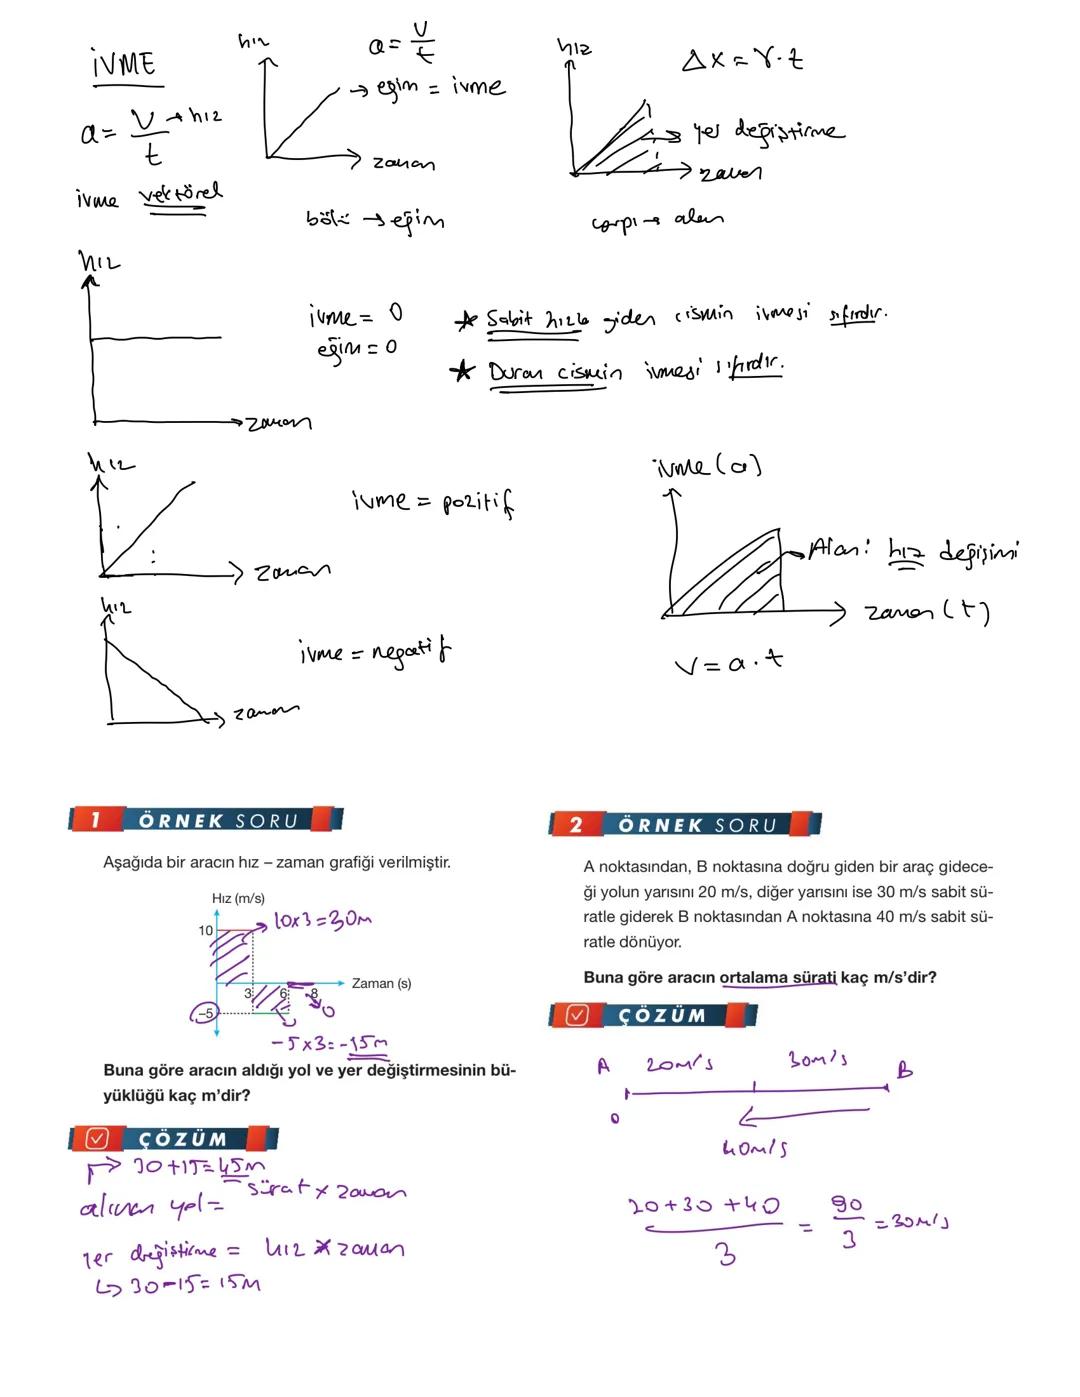 İVME
a = v/t → hız
ivme vektörel
hız
a = v/t
→ eğim = ivme
zaman
bölü → eğim
hız
Δx = v.t
→ yer değiştirme
zaman
çarpı → alan
hız
zaman
ivme = 0
eğim = 0
★ Sabit hızla giden cismin ivmesi sıfırdır.
★ Duran cismin ivmesi sıfırdır.
hız
zaman
ivme = pozitif
ivme (a)
Alan: hız değişimi
zaman (t)
v = a.t
hız
zaman
ivme = negatif
1 ÖRNEK SORU
Aşağıda bir aracın hız – zaman grafiği verilmiştir.
Hız (m/s)
10
10x3=30m
3
6
8
Zaman (s)
0
-5
-5x3=-15m
Buna göre aracın aldığı yol ve yer değiştirmesinin bü-
yüklüğü kaç m'dir?
ÇÖZÜM
30+15=45m
alınan yol = sürat x zaman
yer değiştirme = hız x zaman
↳ 30-15=15m
2 ÖRNEK SORU
A noktasından, B noktasına doğru giden bir araç gidece-
ği yolun yarısını 20 m/s, diğer yarısını ise 30 m/s sabit sü-
ratle giderek B noktasından A noktasına 40 m/s sabit sü-
ratle dönüyor.
Buna göre aracın ortalama sürati kaç m/s'dir?
ÇÖZÜM
A 20m/s 30m/s B
0
40m/s
20+30+40 / 3 = 90/3 = 30m/s